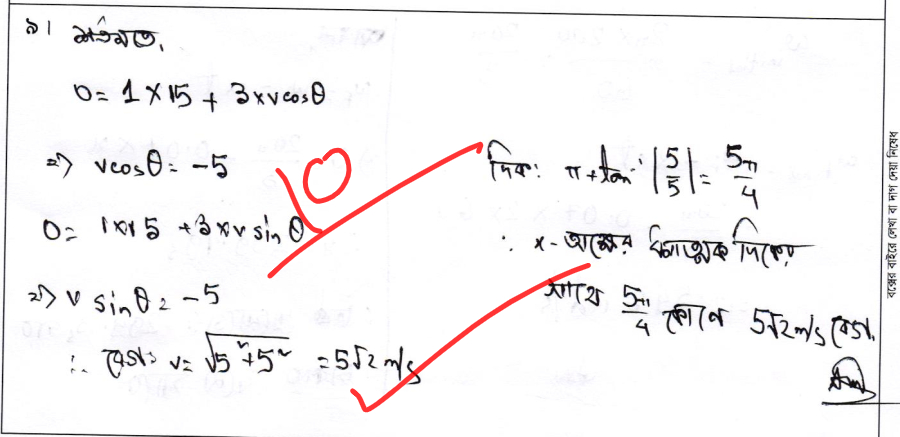 ৯। শর্তমতে,
0 = 1 × 15 + 3 × v cosθ
⇒ v cosθ = -5
0 = 1 × 15 + 3 × v sinθ
⇒ v sinθ = -5
∴ বেগ v = √5² + 5² = 5√2 m/s
10
দিক: π + tan⁻¹ |5/5| = 5π/4
∴ x-অক্ষের ধনাত্মক দিকের
সাথে 5π/4 কোণে 5√2 m/s বেগ.
বক্সের বাইরে লেখা বা দাগ দেয়া নিষেধ